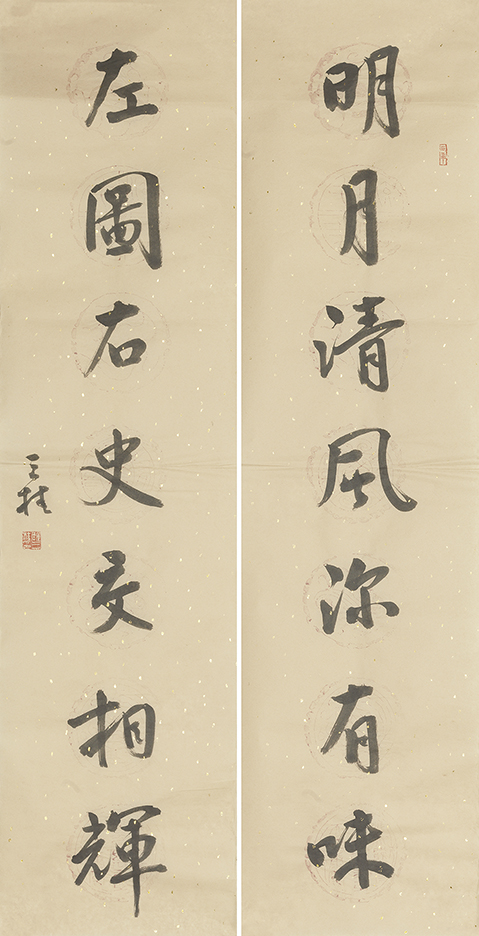 明月清風深有味
左圖右史交相輝